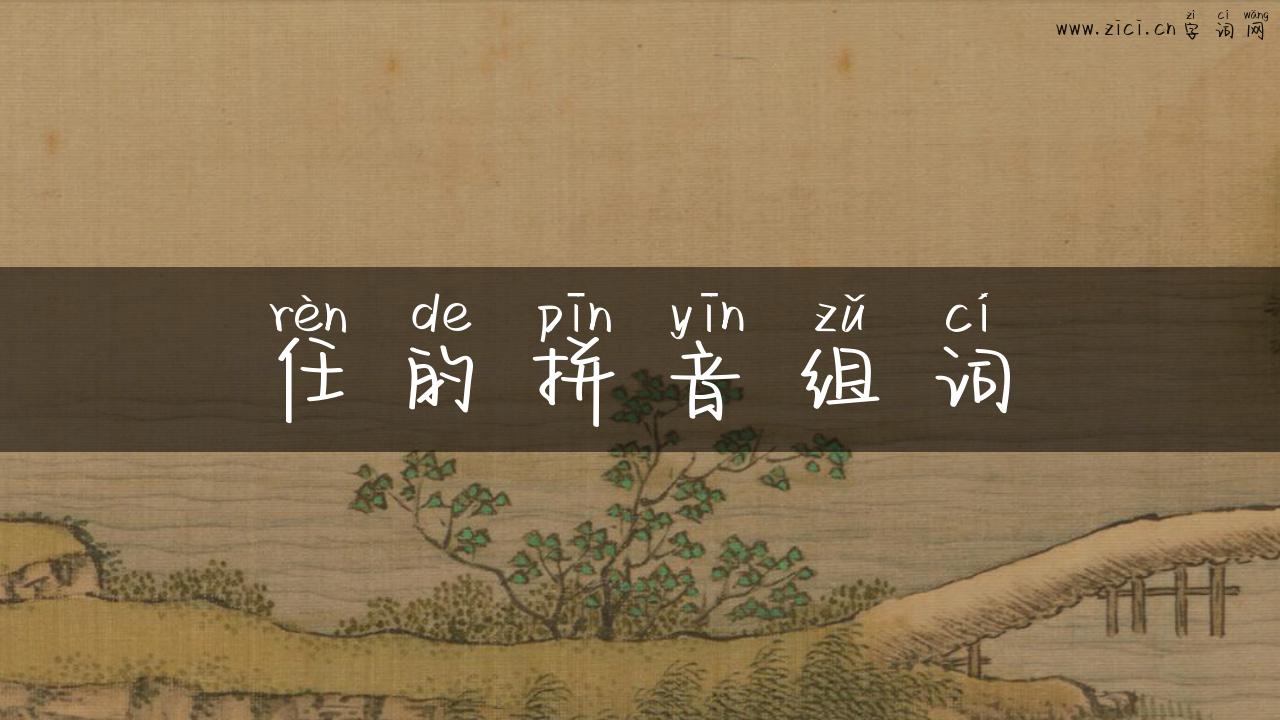 zì cí wǎng
www.zici.cn 字 词 网
rèn de pīn yīn zǔ cí
任 的 拼 音 组 词